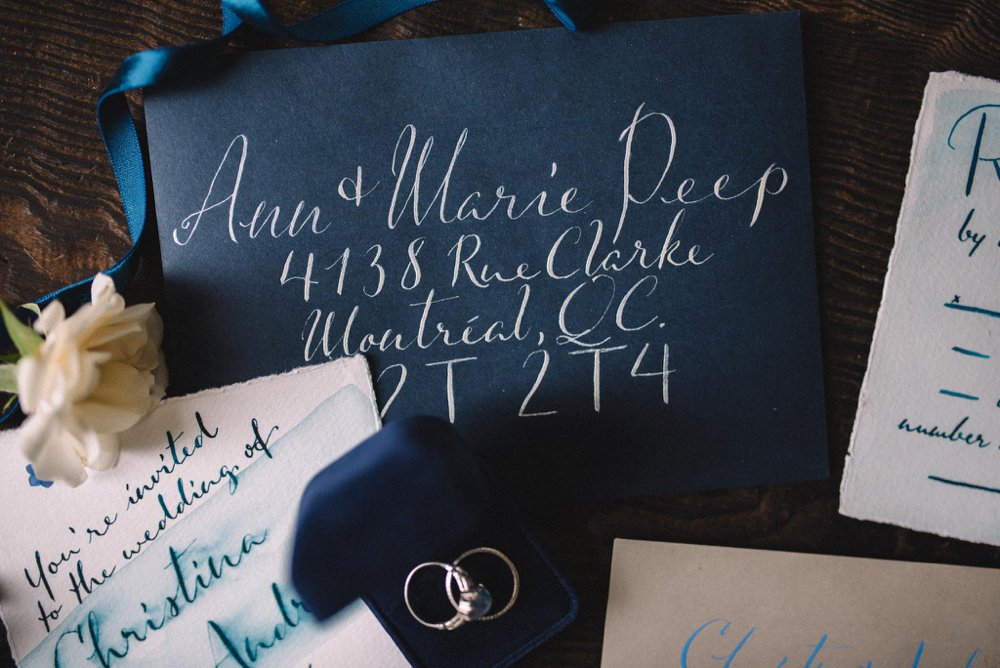 Ann & Marie Peep
4138 Rue Clarke
Montréal, QC.
2T 2T4
You're invited
to the wedding of
Christina
by
number